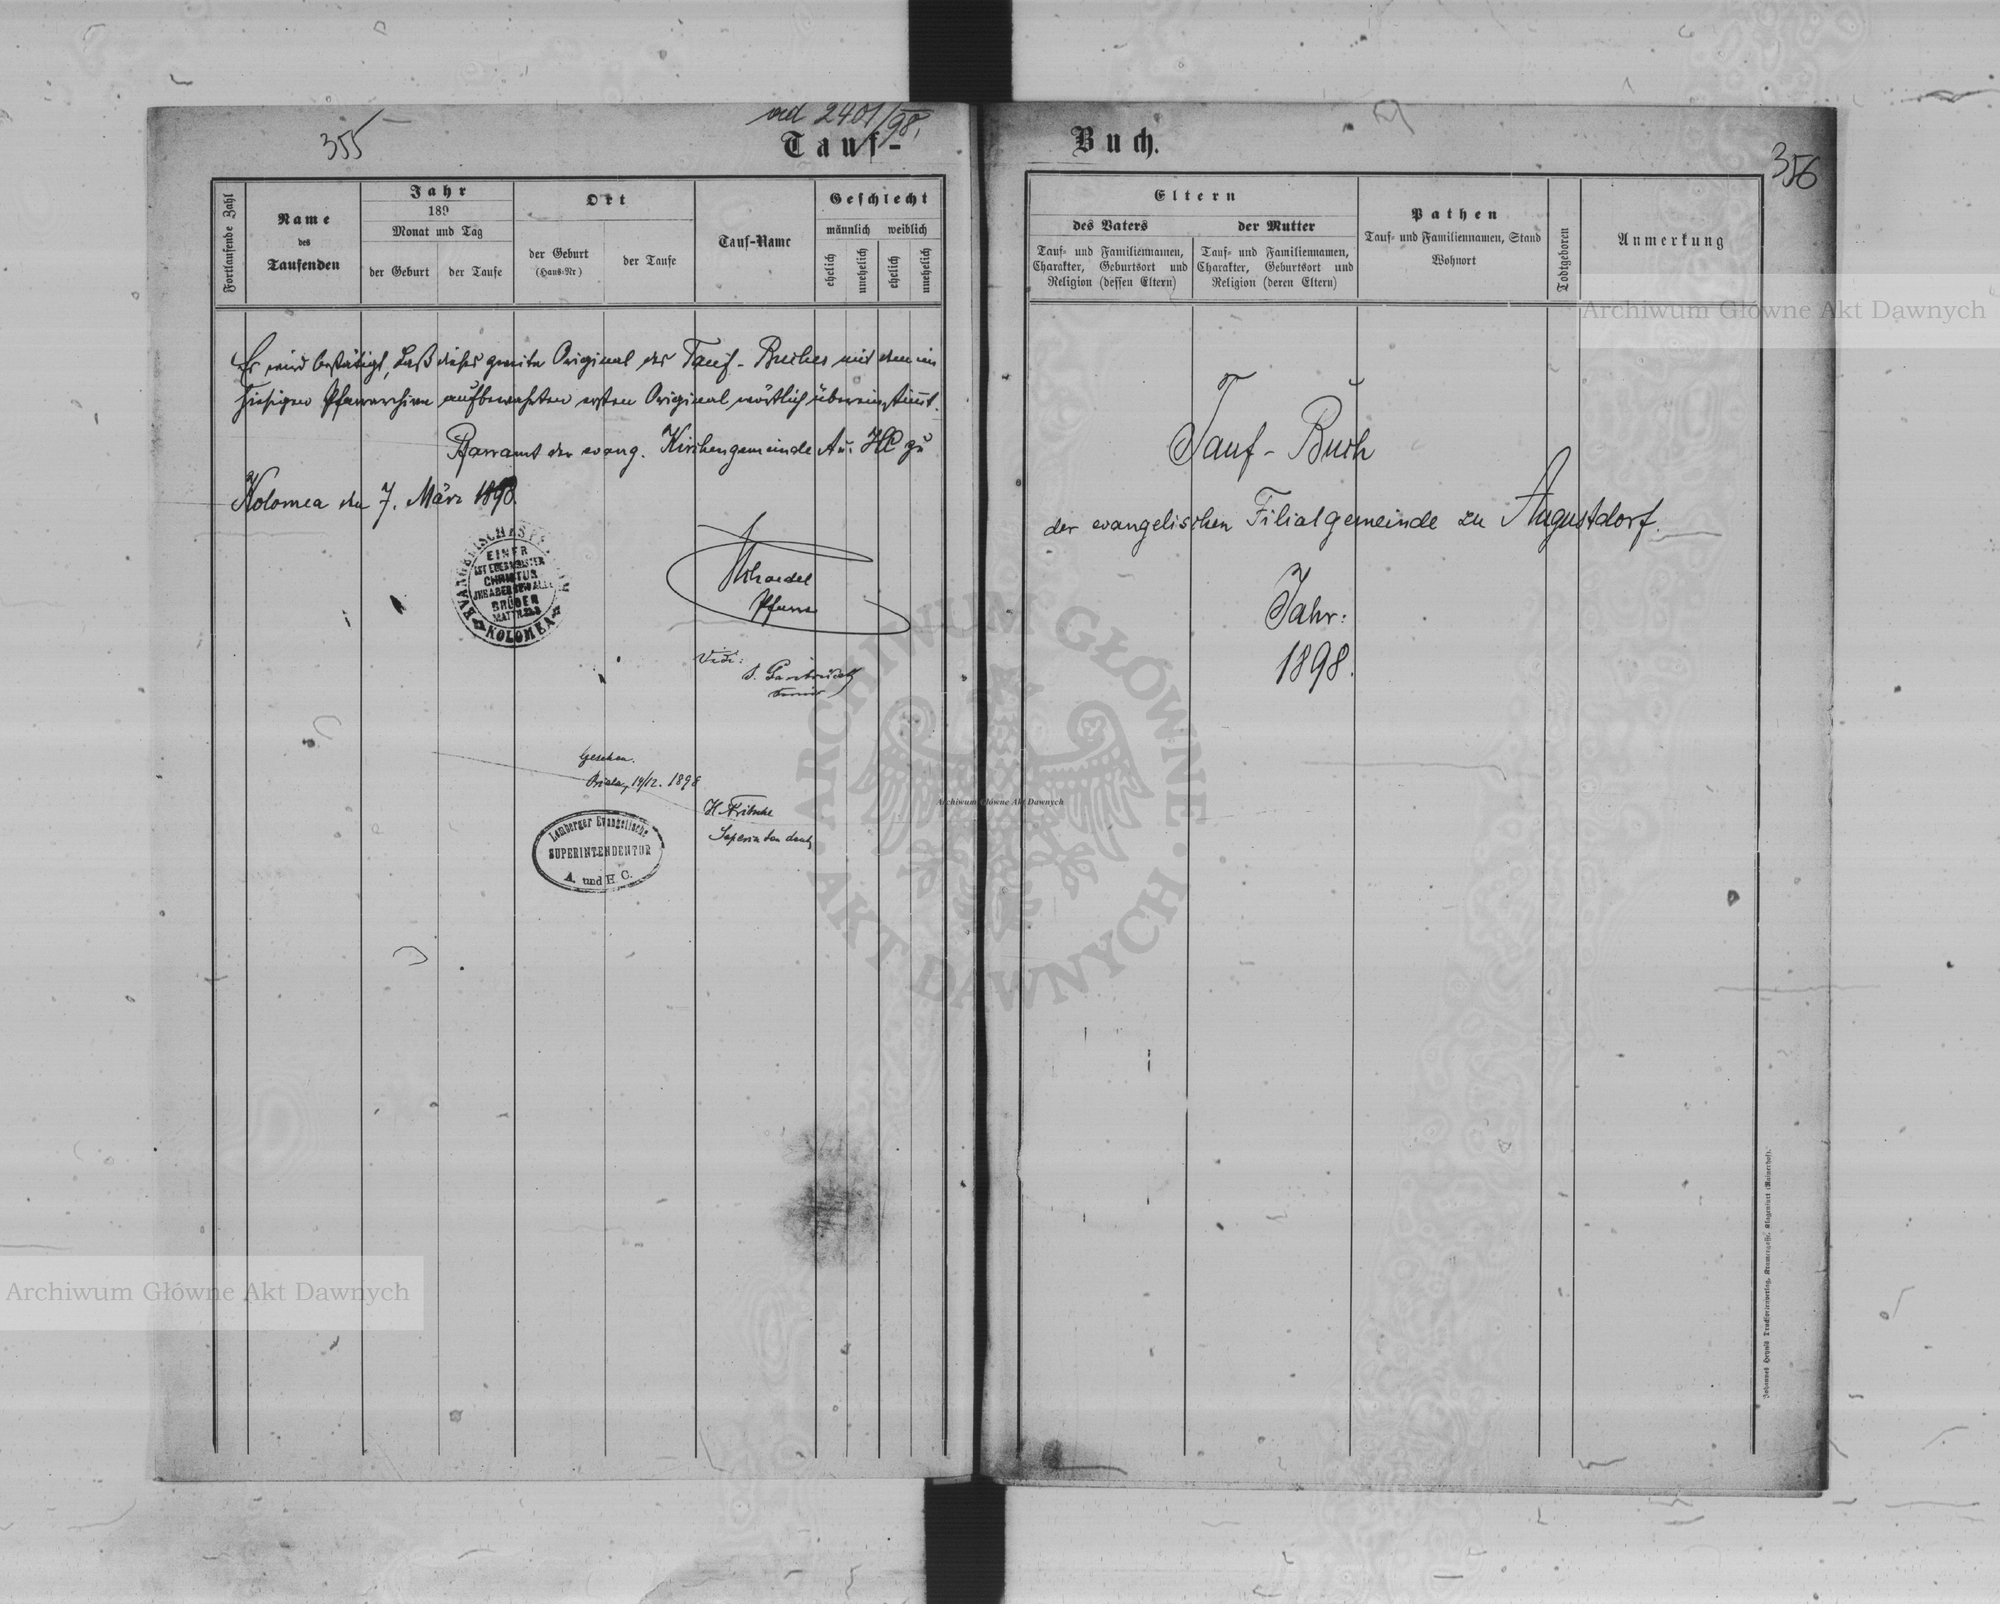 355
ad 2401/98.
Tauf-
Fortlaufende Zahl
Name
des
Taufenden
Jahr
189
Monat und Tag
der Geburt
der Taufe
Ort
der Geburt
(Haus-Nr)
der Taufe
Tauf-Name
Geschlecht
männlich weiblich
ehelich
unehelich
ehelich
unehelich
Es wird bestätigt, daß dieses zweite Original des Tauf-Buches mit dem im
hiesigen Pfarrarchive aufbewahrten ersten Original wörtlich übereinstimmt.
Pfarramt der evang. Kirchengemeinde A u. HC zu
Kolomea den 7. März 1898.
EINER
IST EUER MEISTER
CHRISTUS
IHR ABER SEID ALLE
BRÜDER
MATTH.23.8
KOLOMEA
Pfarrer
Vidi:
Senior
Gesehen.
Biala, 14/12. 1898
Superintendent
Lemberger Evangelische
SUPERINTENDENTUR
A. und H C.
Buch.
356
Eltern
des Vaters
der Mutter
Tauf- und Familiennamen,
Charakter, Geburtsort und
Religion (dessen Eltern)
Tauf- und Familiennamen,
Charakter, Geburtsort und
Religion (deren Eltern)
Pathen
Tauf- und Familiennamen, Stand
Wohnort
Todtgeboren
Anmerkung
Tauf-Buch
der evangelischen Filialgemeinde zu Augustdorf.
Jahr:
1898.
Archiwum Główne Akt Dawnych
Archiwum Główne Akt Dawnych
Archiwum Główne Akt Dawnych
ARCHIWUM GŁÓWNE
AKT DAWNYCH